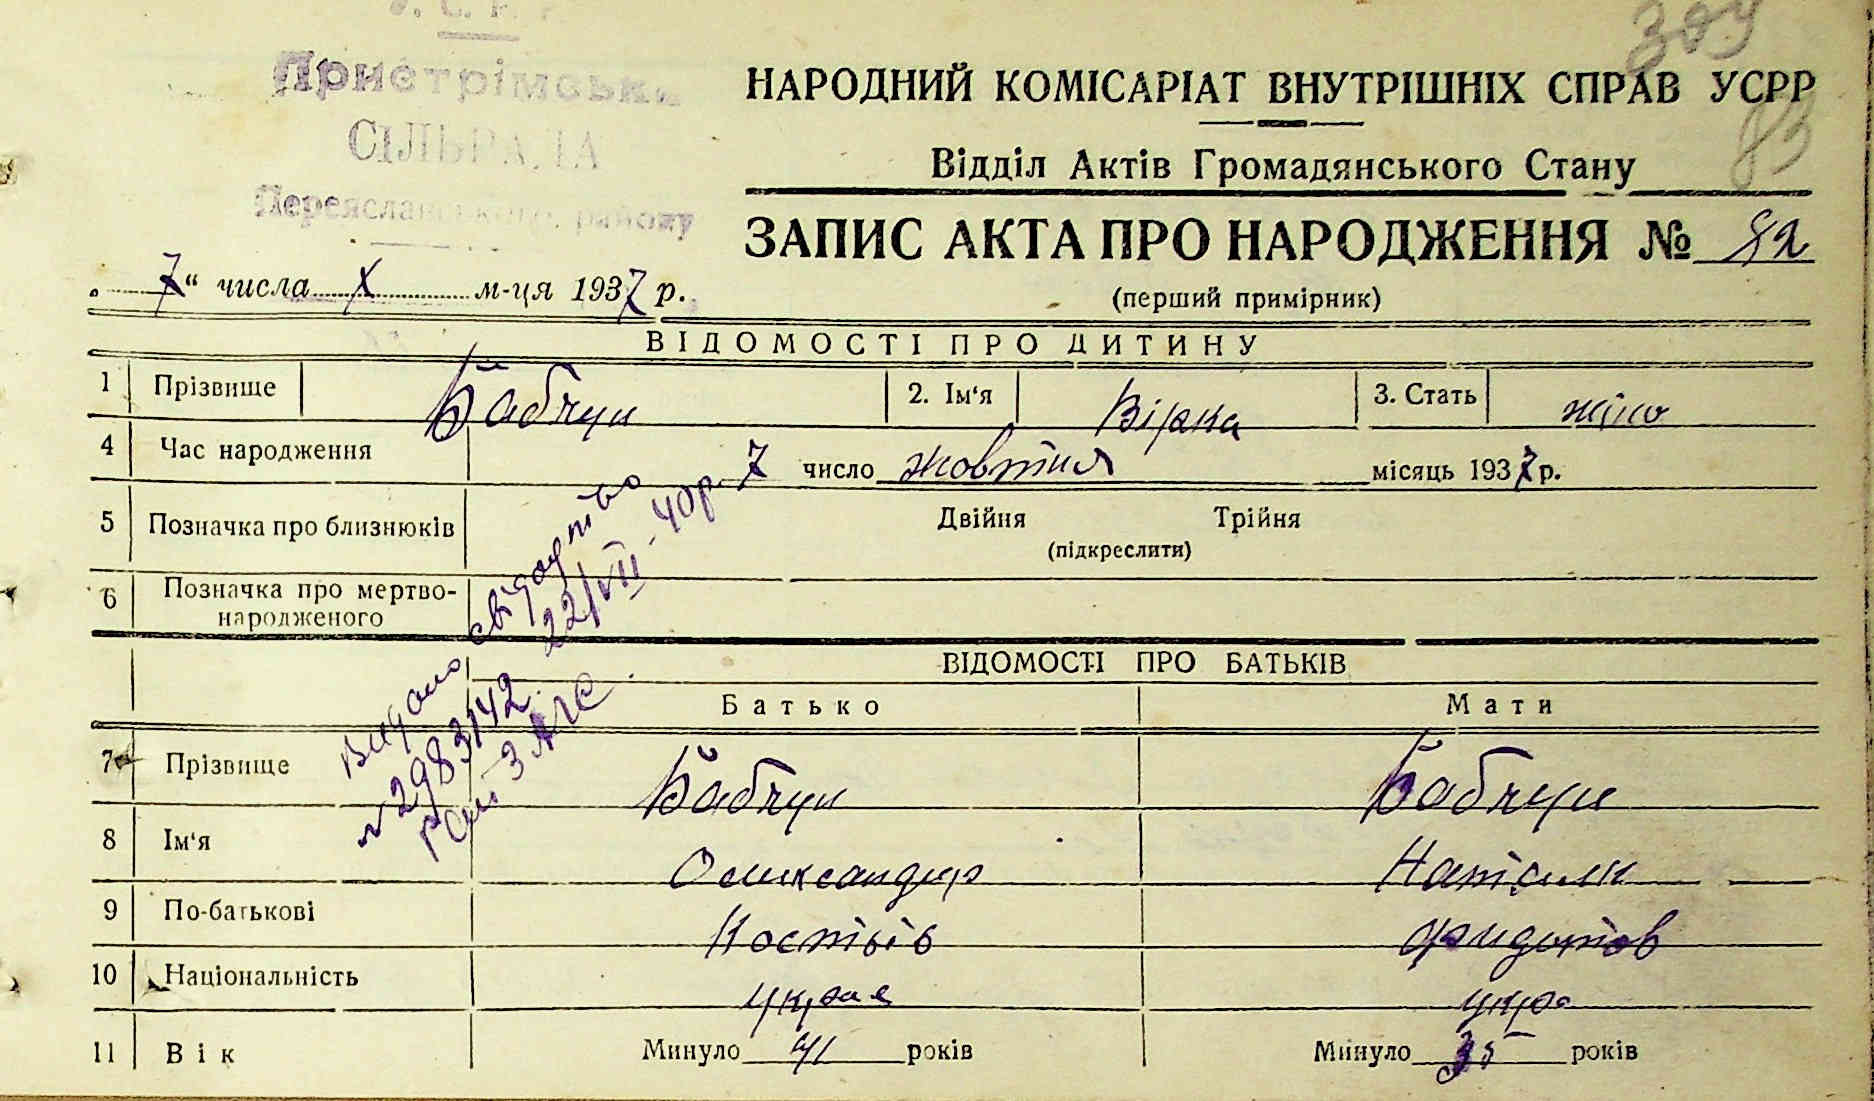 У. С. Р. Р.
Пристрімська
СІЛЬРАДА
Переяславського району
309
83
НАРОДНИЙ КОМІСАРІАТ ВНУТРІШНІХ СПРАВ УСРР
Відділ Актів Громадянського Стану
ЗАПИС АКТА ПРО НАРОДЖЕННЯ № 82
(перший примірник)
„ 7“ числа X м-ця 1937 р.
ВІДОМОСТІ ПРО ДИТИНУ
1 Прізвище Бабчук 2. Ім‘я Вірка 3. Стать жіно
4 Час народження 7 число жовтня місяць 1937 р.
5 Позначка про близнюків Двійня Трійня
(підкреслити)
6 Позначка про мертво-
народженого
Видано свідоцтво
№ 2983142 22/VII-40р.
Рай-ЗАГС
ВІДОМОСТІ ПРО БАТЬКІВ
Батько Мати
7 Прізвище Бабчук Бабчук
8 Ім‘я Олександер Наталк
9 По-батькові Костьів Федотов
10 Національність украе укра
11 Вік Минуло 41 років Минуло 35 років